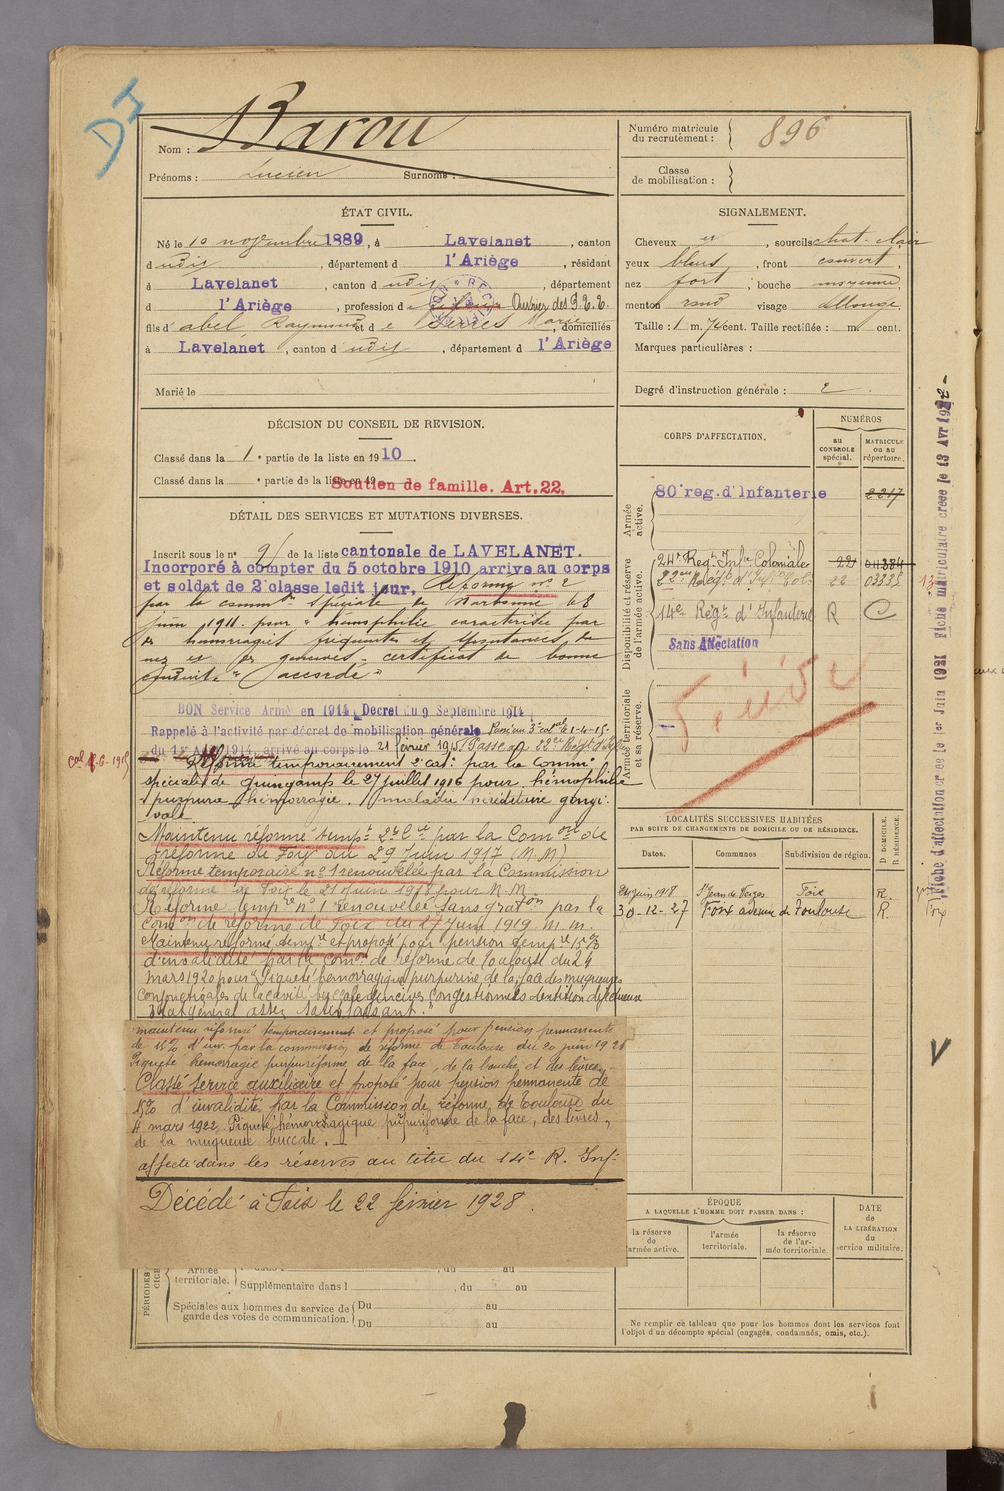 DI
Nom : Barou
Prénoms : Lucien Surnoms :
Numéro matricule du recrutement : 896
Classe de mobilisation :
ÉTAT CIVIL.
Né le 10 novembre 1889, à Lavelanet, canton
d udit, département d l'Ariège, résidant
à Lavelanet, canton d udit, département
d l'Ariège, profession d Ouvrier des P.T.T.
fils d'abel, Raymond et d e Serres Marie, domiciliés
à Lavelanet, canton d udit, département d l'Ariège
Marié le
SIGNALEMENT.
Cheveux et, sourcils chat. clair
yeux bleus, front couvert,
nez fort, bouche moyenne,
menton rond visage allongé.
Taille : 1 m. 74 cent. Taille rectifiée : m. cent.
Marques particulières :
Degré d'instruction générale : 2.
DÉCISION DU CONSEIL DE REVISION.
Classé dans la 1e partie de la liste en 1910.
Classé dans la e partie de la liste en 19
Soutien de famille. Art. 22.
DÉTAIL DES SERVICES ET MUTATIONS DIVERSES.
Inscrit sous le n° 26 de la liste cantonale de LAVELANET.
Incorporé à compter du 5 octobre 1910 arrive au corps
et soldat de 2e classe ledit jour, Réformé n° 2
par la comm.on spéciale de Narbonne le 8
juin 1911 pour "hémophilie caractérisée par
des hémorragies fréquentes et spontanées du
nez et des gencives". certificat de bonne
conduite "accordé"
BON Service Armé en 1914, Décret du 9 Septembre 1914
Rappelé à l'activité par décret de mobilisation générale
du 1er Août 1914, arrivé au corps le 21 février 1915
Passé au 22e Régt d'Inf.
Col. 1-6-1915
Réformé temporairement 2e cat. par la Comm.on
spéciale de Guingamp le 27 juillet 1916 pour hémophilie
purpura hémorragie. maladie héréditaire gengi-
vale.
Maintenu réformé tempt 2e Cie par la Comon de
réforme de Foix du 29 Juin 1917 (N.M)
Réforme temporaire n° 1 renouvelée par la Commission
de réforme de Foix le 21 Juin 1918 pour N.M.
Réforme tempre n° 1 renouvelée sans graton par la
Comon de réforme de Foix du 27 Juin 1919 M.M.
Maintenu réformé tempre et proposé pour pension tempre 15%
d'invalidité par la Comon de réforme de Toulouse du 24
mars 1920 pour Piqueté hémorragique purpurine de la face des muqueuses
conjonctivales de la cavité buccale gencives congestionnées dentition défectueuse
Etat général assez satisfaisant.
maintenu réformé temporairement et proposé pour pension permanente
de 15% d'inv. par la commission de réforme de Toulouse du 20 juin 1921
Piqueté hémorragie purpuriforme de la face, de la bouche et des lèvres.
Classé service auxiliaire et proposé pour pension permanente de
15% d'invalidité par la Commission de réforme de Toulouse du
4 mars 1922. Piqueté hémorragique purpuriforme de la face, des lèvres,
de la muqueuse buccale.
affecté dans les réserves au titre du 14e R. Inf.
Décédé à Foix le 22 février 1928.
CORPS D'AFFECTATION.
NUMÉROS
au CONTROLE spécial.
MATRICULE ou au répertoire.
Armée active.
80e reg. d'Infanterie 2217
Disponibilité et réserve de l'armée active.
24e Régt Infie Coloniale 22 04384
22eme Régt d'Inf. Col. 22 03338
14e Régt d'Infanterie R C
Sans Affectation
Armée territoriale et sa réserve.
LOCALITÉS SUCCESSIVES HABITÉES
PAR SUITE DE CHANGEMENTS DE DOMICILE OU DE RÉSIDENCE.
Dates. Communes Subdivision de région. D. DOMICILE. R. RÉSIDENCE.
24 juin 1918 St Jean de Verges Foix R.
30-12-27 Foix avenue de Toulouse R.
ÉPOQUE
A LAQUELLE L'HOMME DOIT PASSER DANS :
la réserve de l'armée active.
l'armée territoriale.
la réserve de l'armée territoriale.
DATE de LA LIBÉRATION du service militaire.
Ne remplir ce tableau que pour les hommes dont les services font
l'objet d'un décompte spécial (engagés, condamnés, omis, etc.).
Armée territoriale.
Supplémentaire dans l , du au
Spéciales aux hommes du service de garde des voies de communication.
Du au
Du au
Fiche d'affectation créée le 1er Juin 1921 Fiche matriculaire créée le 13 Avr 1922